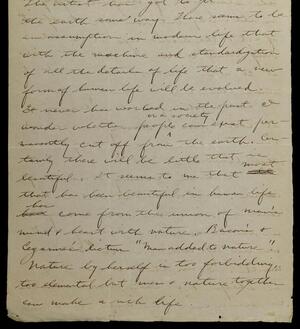 the earth some way. There seems to be
an assumption in modern life that
with the machine and standardization
of all the details of life that a new
form of human life will be evolved.
It never has worked in the past &
or a society
wonder whether people can exist per-
manently cut off from the earth. Cer-
tainly there will be little that is
most
beautiful. It seems to me that
that has been beautiful in human life
has come from the union of man's
mind & heart with nature. Bacon's &
Cezanne's dictum "Man added to nature".
Nature by herself is too forbidding,
too elemental but man & nature together
can make a rich life.